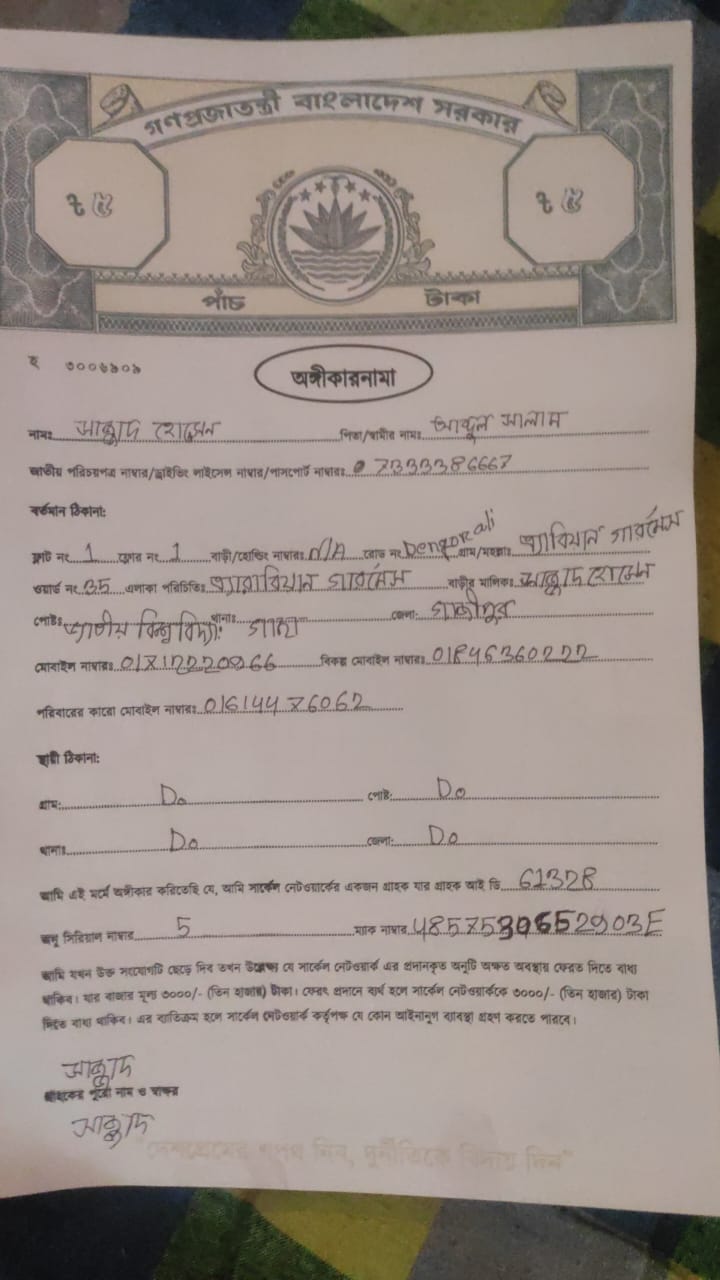 গণপ্রজাতন্ত্রী বাংলাদেশ সরকার
৳ ৫ ৳ ৫
পাঁচ টাকা
হ ৩০০৬৯০৯
অঙ্গীকারনামা
নামঃ হোসেন পিতা/স্বামীর নামঃ আব্দুল সালাম
জাতীয় পরিচয়পত্র নাম্বার/ড্রাইভিং লাইসেন্স নাম্বার/পাসপোর্ট নাম্বারঃ 7333386667
বর্তমান ঠিকানা:
ফ্লাট নং 1 ফ্লোর নং 1 বাড়ী/হোল্ডিং নাম্বারঃ N/A রোড নং Dengorali গ্রাম/মহল্লাঃ এ্যারিয়ান গারমেস
ওয়ার্ড নং 35 এলাকা পরিচিতিঃ এ্যারাবিয়ান গারমেস বাড়ীর মালিকঃ হোসেন
পোষ্টঃ জাতীয় বিশ্ববিদ্যাঃ থানাঃ গাছা জেলা: গাজীপুর
মোবাইল নাম্বারঃ বিকল্প মোবাইল নাম্বারঃ 01846360222
পরিবারের কারো মোবাইল নাম্বারঃ 01614476062
স্থায়ী ঠিকানা:
গ্রাম: Do পোষ্ট: Do
থানাঃ Do জেলা: Do
আমি এই মর্মে অঙ্গীকার করিতেছি যে, আমি সার্কেল নেটওয়ার্কের একজন গ্রাহক যার গ্রাহক আই ডি 61328
অনু সিরিয়াল নাম্বার 5 ম্যাক নাম্বার 4857530652903E
আমি যখন উক্ত সংযোগটি ছেড়ে দিব তখন উল্লেখ্য যে সার্কেল নেটওয়ার্ক এর প্রদানকৃত অনুটি অক্ষত অবস্থায় ফেরত দিতে বাধ্য
থাকিব। যার বাজার মূল্য ৩০০০/- (তিন হাজার) টাকা। ফেরৎ প্রদানে ব্যর্থ হলে সার্কেল নেটওয়ার্ককে ৩০০০/- (তিন হাজার) টাকা
দিতে বাধ্য থাকিব। এর ব্যতিক্রম হলে সার্কেল নেটওয়ার্ক কর্তৃপক্ষ যে কোন আইনানুগ ব্যবস্থা গ্রহণ করতে পারবে।
গ্রাহকের পূরো নাম ও স্বাক্ষর
"দেশপ্রেমের শপথ নিন, দুর্নীতিকে বিদায় দিন"